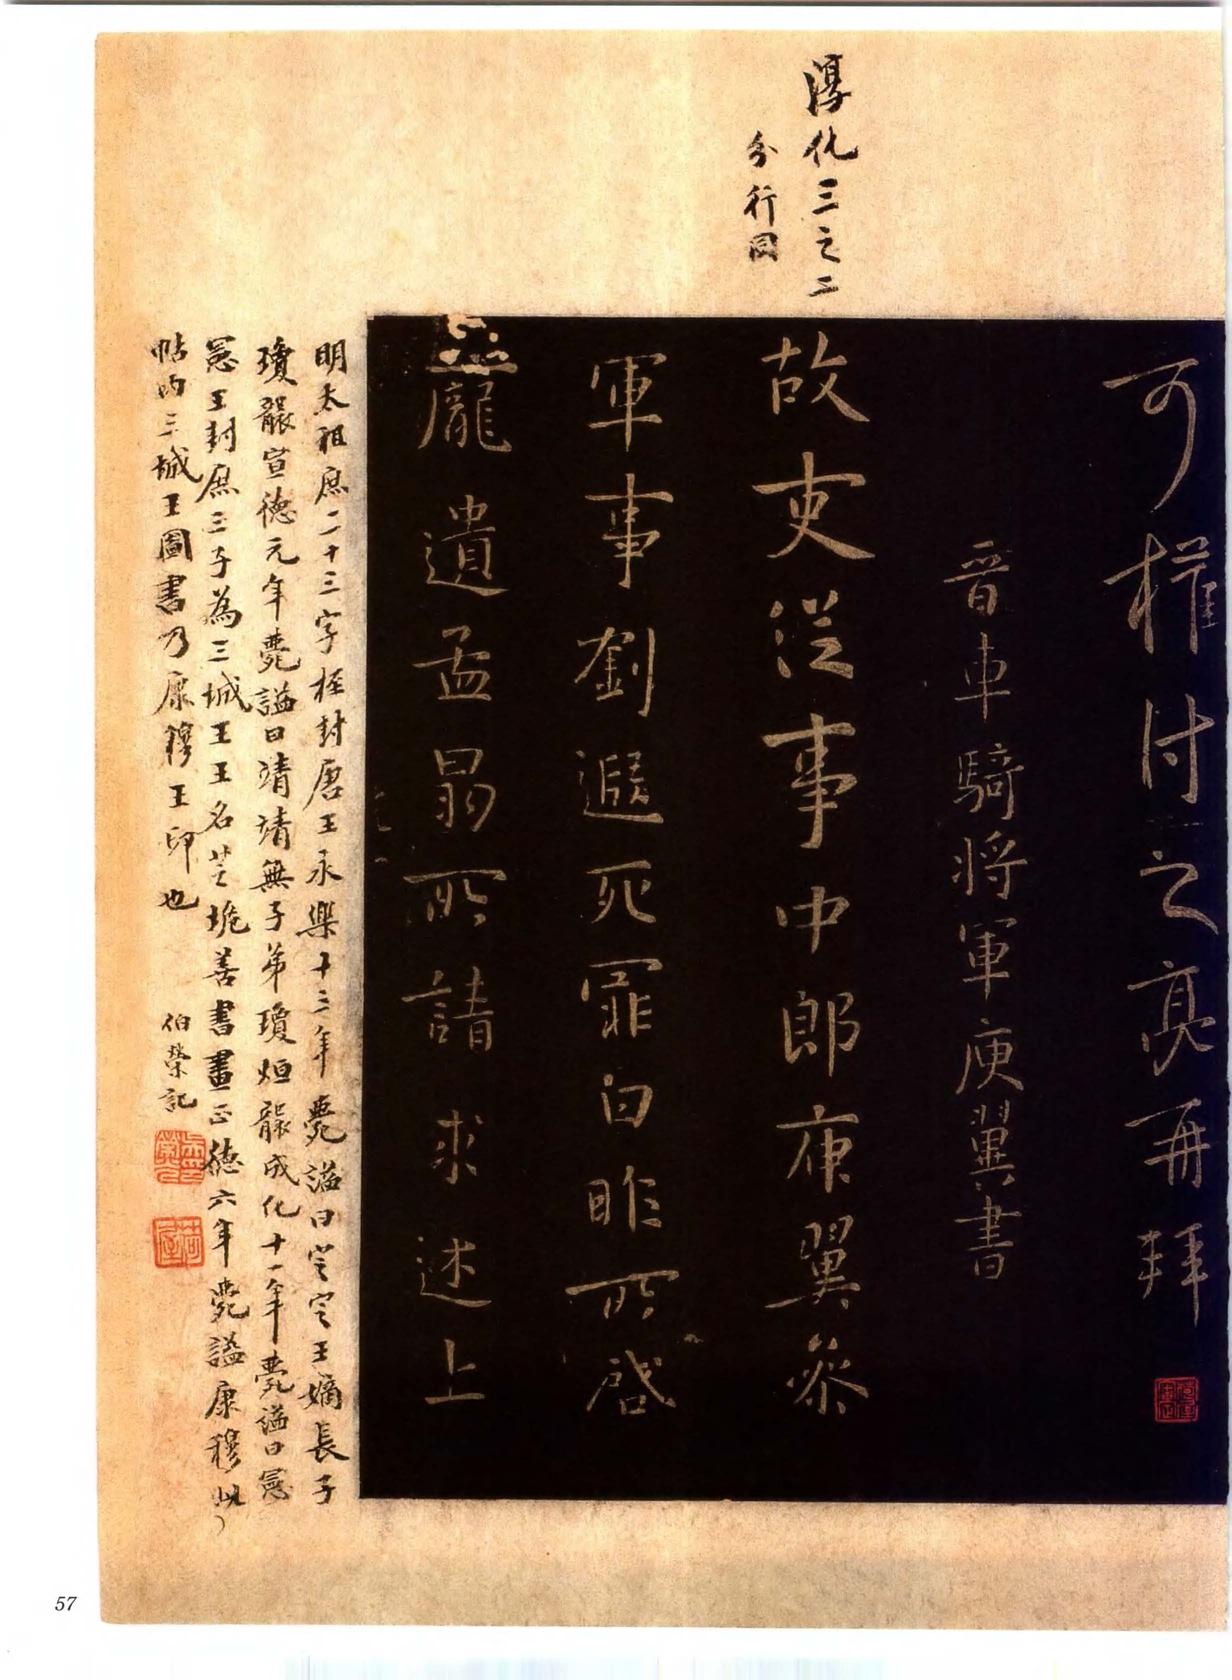 淳化三之二
分行同
可權付之亮再拜
晉車騎將軍庾翼書
故吏從事中郎庾翼參
軍事劉遐死罪白昨所啓
龐遺孟昻所請求述上
明太祖庶二十三字桱封唐王永樂十三年薨諡曰定定王嫡長子
瓊嗣宣德元年薨諡曰靖靖無子弟瓊烴嗣成化十一年薨諡曰憲
憲王封庶三子為三城王王名芝垝善書畫正德六年薨諡康穆此
帖內三城王圖書乃康穆王印也
伯榮記
57